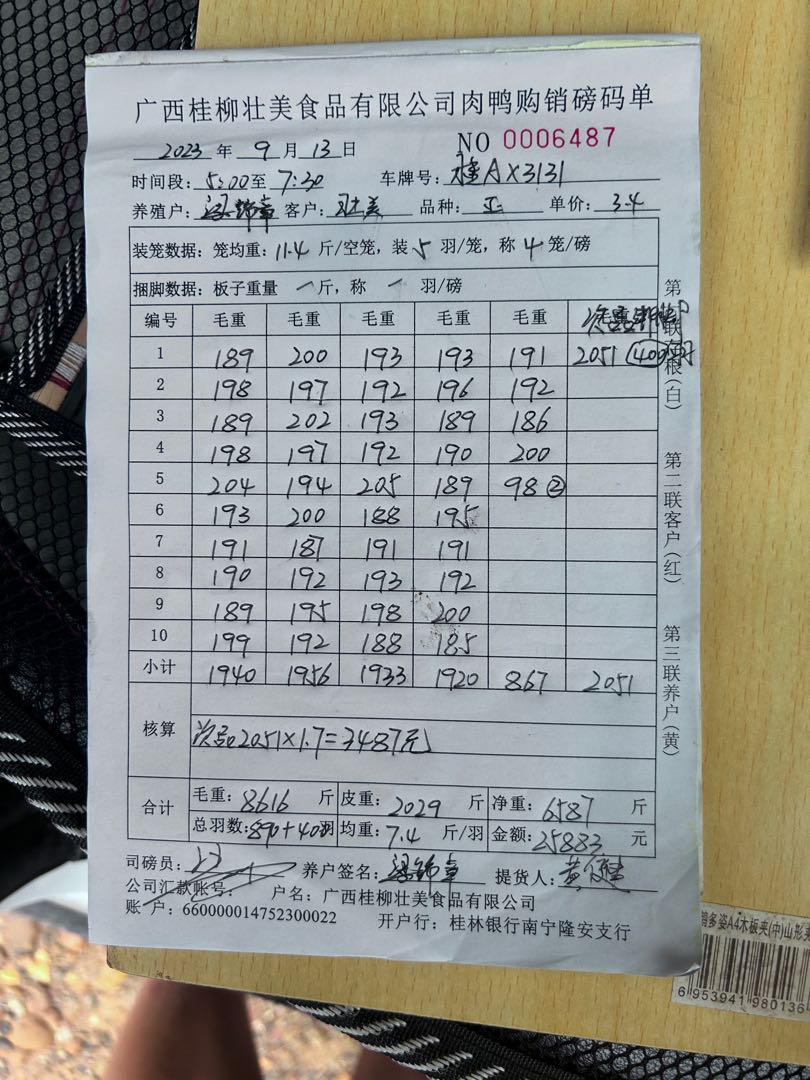 广西桂柳壮美食品有限公司肉鸭购销磅码单
2023 年 9 月 13 日 NO 0006487
时间段: 5:00 至 7:30 车牌号: 桂AX3131
养殖户: 梁锦章 客户: 壮美 品种: 单价: 3.4
装笼数据: 笼均重: 11.4 斤/空笼, 装 5 羽/笼, 称 4 笼/磅
捆脚数据: 板子重量 斤, 称 羽/磅
编号 毛重 毛重 毛重 毛重 毛重 次品
1 189 200 193 193 191 2051 400
2 198 197 192 196 192
3 189 202 193 189 186
4 198 197 192 190 200
5 204 194 205 189 98 ②
6 193 200 188 195
7 191 187 191 191
8 190 192 193 192
9 189 195 198 200
10 199 192 188 185
小计 1940 1956 1933 1920 867 2051
核算 次品2051×1.7=3487元
合计 毛重: 8616 斤 皮重: 2029 斤 净重: 6587 斤
总羽数: 890+400羽 均重: 7.4 斤/羽 金额: 25883 元
司磅员: 养户签名: 梁锦章 提货人:
公司汇款帐号: 户名: 广西桂柳壮美食品有限公司
账 户: 660000014752300022 开户行: 桂林银行南宁隆安支行
第一联存根(白)
第二联客户(红)
第三联养户(黄)
多姿A4木板夹(中)山形夹
6 953941 980136